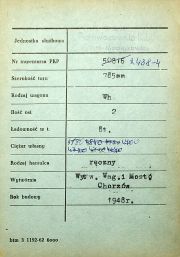 Jednostka służbowa
Nr inwentarza PKP 50815
Szerokość toru 785mm
Rodzaj wagonu Wh
Ilość osi 2
Ładowność w t 8t.
Ciężar własny
Rodzaj hamulca ręczny
Wytwórnia Wytw. Wag. i Mostó
Chorzów.
Rok budowy 1948r.